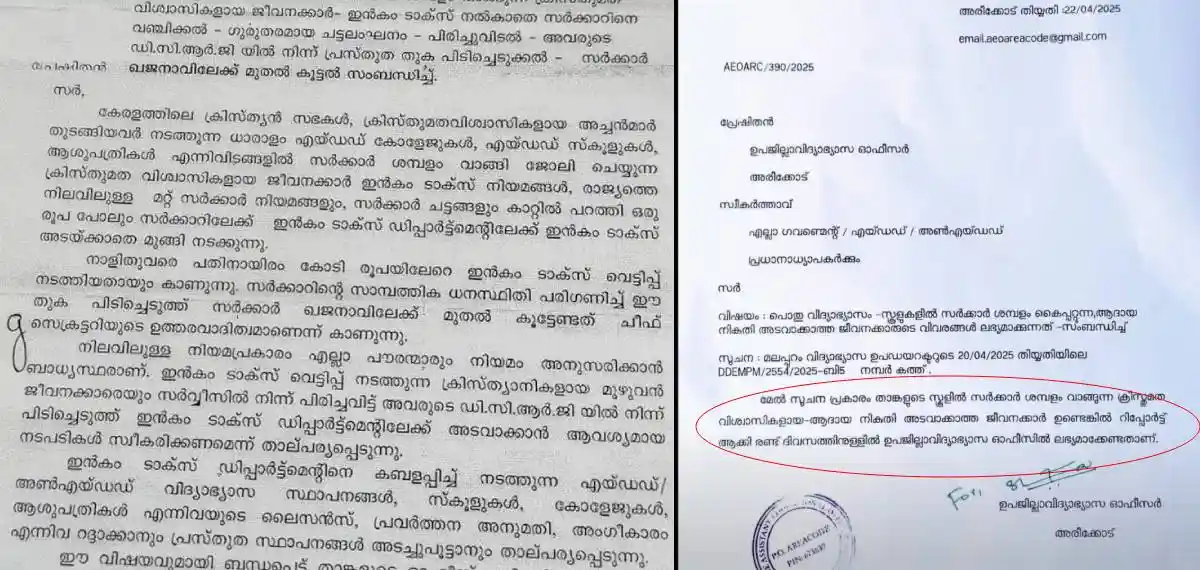 വിശ്വാസികളായ ജീവനക്കാർ- ഇൻകം ടാക്സ് നൽകാതെ സർക്കാറിനെ
വഞ്ചിക്കൽ - ഗുരുതരമായ ചട്ടലംഘനം - പിരിച്ചുവിടൽ - അവരുടെ
ഡി.സി.ആർ.ജി യിൽ നിന്ന് പ്രസ്തുത തുക പിടിച്ചെടുക്കൽ - സർക്കാർ
ഖജനാവിലേക്ക് മുതൽ കൂട്ടൽ സംബന്ധിച്ച്.
സർ,
കേരളത്തിലെ ക്രിസ്ത്യൻ സഭകൾ, ക്രിസ്തുമതവിശ്വാസികളായ അച്ചൻമാർ
തുടങ്ങിയവർ നടത്തുന്ന ധാരാളം എയ്ഡഡ് കോളേജുകൾ, എയ്ഡഡ് സ്കൂളുകൾ,
ആശുപത്രികൾ എന്നിവിടങ്ങളിൽ സർക്കാർ ശമ്പളം വാങ്ങി ജോലി ചെയ്യുന്ന
ക്രിസ്തുമത വിശ്വാസികളായ ജീവനക്കാർ ഇൻകം ടാക്സ് നിയമങ്ങൾ, രാജ്യത്തെ
നിലവിലുള്ള മറ്റ് സർക്കാർ നിയമങ്ങളും, സർക്കാർ ചട്ടങ്ങളും കാറ്റിൽ പറത്തി ഒരു
രൂപ പോലും സർക്കാറിലേക്ക് ഇൻകം ടാക്സ് ഡിപ്പാർട്ട്മെന്റിലേക്ക് ഇൻകം ടാക്സ്
അടയ്ക്കാതെ മുങ്ങി നടക്കുന്നു.
നാളിതുവരെ പതിനായിരം കോടി രൂപയിലേറെ ഇൻകം ടാക്സ് വെട്ടിപ്പ്
നടത്തിയതായും കാണുന്നു. സർക്കാറിന്റെ സാമ്പത്തിക ധനസ്ഥിതി പരിഗണിച്ച് ഈ
തുക പിടിച്ചെടുത്ത് സർക്കാർ ഖജനാവിലേക്ക് മുതൽ കൂട്ടേണ്ടത് ചീഫ്
സെക്രട്ടറിയുടെ ഉത്തരവാദിത്വമാണെന്ന് കാണുന്നു.
നിലവിലുള്ള നിയമപ്രകാരം എല്ലാ പൗരന്മാരും നിയമം അനുസരിക്കാൻ
ബാധ്യസ്ഥരാണ്. ഇൻകം ടാക്സ് വെട്ടിപ്പ് നടത്തുന്ന ക്രിസ്ത്യാനികളായ മുഴുവൻ
ജീവനക്കാരെയും സർവ്വീസിൽ നിന്ന് പിരിച്ചുവിട്ട് അവരുടെ ഡി.സി.ആർ.ജി യിൽ നിന്ന്
പിടിച്ചെടുത്ത് ഇൻകം ടാക്സ് ഡിപ്പാർട്ട്മെന്റിലേക്ക് അടവാക്കാൻ ആവശ്യമായ
നടപടികൾ സ്വീകരിക്കണമെന്ന് താല്പര്യപ്പെടുന്നു.
ഇൻകം ടാക്സ് ഡിപ്പാർട്ട്മെന്റിനെ കബളപ്പിച്ച് നടത്തുന്ന എയ്ഡഡ്/
അൺഎയ്ഡഡ് വിദ്യാഭ്യാസ സ്ഥാപനങ്ങൾ, സ്കൂളുകൾ, കോളേജുകൾ,
ആശുപത്രികൾ എന്നിവയുടെ ലൈസൻസ്, പ്രവർത്തന അനുമതി, അംഗീകാരം
എന്നിവ റദ്ദാക്കാനും പ്രസ്തുത സ്ഥാപനങ്ങൾ അടച്ചുപൂട്ടാനും താല്പര്യപ്പെടുന്നു.
ഈ വിഷയവുമായി ബന്ധപ്പെട്ട്
അരീക്കോട് തിയ്യതി :22/04/2025
email.aeoareacode@gmail.com
AEOARC/390/2025
പ്രേഷിതൻ
ഉപജില്ലാവിദ്യാഭ്യാസ ഓഫീസർ
അരീക്കോട്
സ്വീകർത്താവ്
എല്ലാ ഗവണ്മെന്റ് / എയ്ഡഡ് / അൺഎയ്ഡഡ്
പ്രധാനാധ്യാപകർക്കും
സർ
വിഷയം : പൊതു വിദ്യാഭ്യാസം -സ്കൂളുകളിൽ സർക്കാർ ശമ്പളം കൈപ്പറ്റുന്ന,ആദായ
നികുതി അടവാക്കാത്ത ജീവനക്കാരുടെ വിവരങ്ങൾ ലഭ്യമാക്കുന്നത് -സംബന്ധിച്ച്
സൂചന : മലപ്പുറം വിദ്യാഭ്യാസ ഉപഡയറക്ടറുടെ 20/04/2025 തിയ്യതിയിലെ
DDEMPM/2554/2025-ബി5 നമ്പർ കത്ത് .
മേൽ സൂചന പ്രകാരം താങ്കളുടെ സ്കൂളിൽ സർക്കാർ ശമ്പളം വാങ്ങുന്ന ക്രിസ്തുമത
വിശ്വാസികളായ-ആദായ നികുതി അടവാക്കാത്ത ജീവനക്കാർ ഉണ്ടെങ്കിൽ റിപ്പോർട്ട്
ആക്കി രണ്ട് ദിവസത്തിനുള്ളിൽ ഉപജില്ലാവിദ്യാഭ്യാസ ഓഫീസിൽ ലഭ്യമാക്കേണ്ടതാണ്.
For
ഉപജില്ലാവിദ്യാഭ്യാസ ഓഫീസർ
അരീക്കോട്
P.O. AREACODE